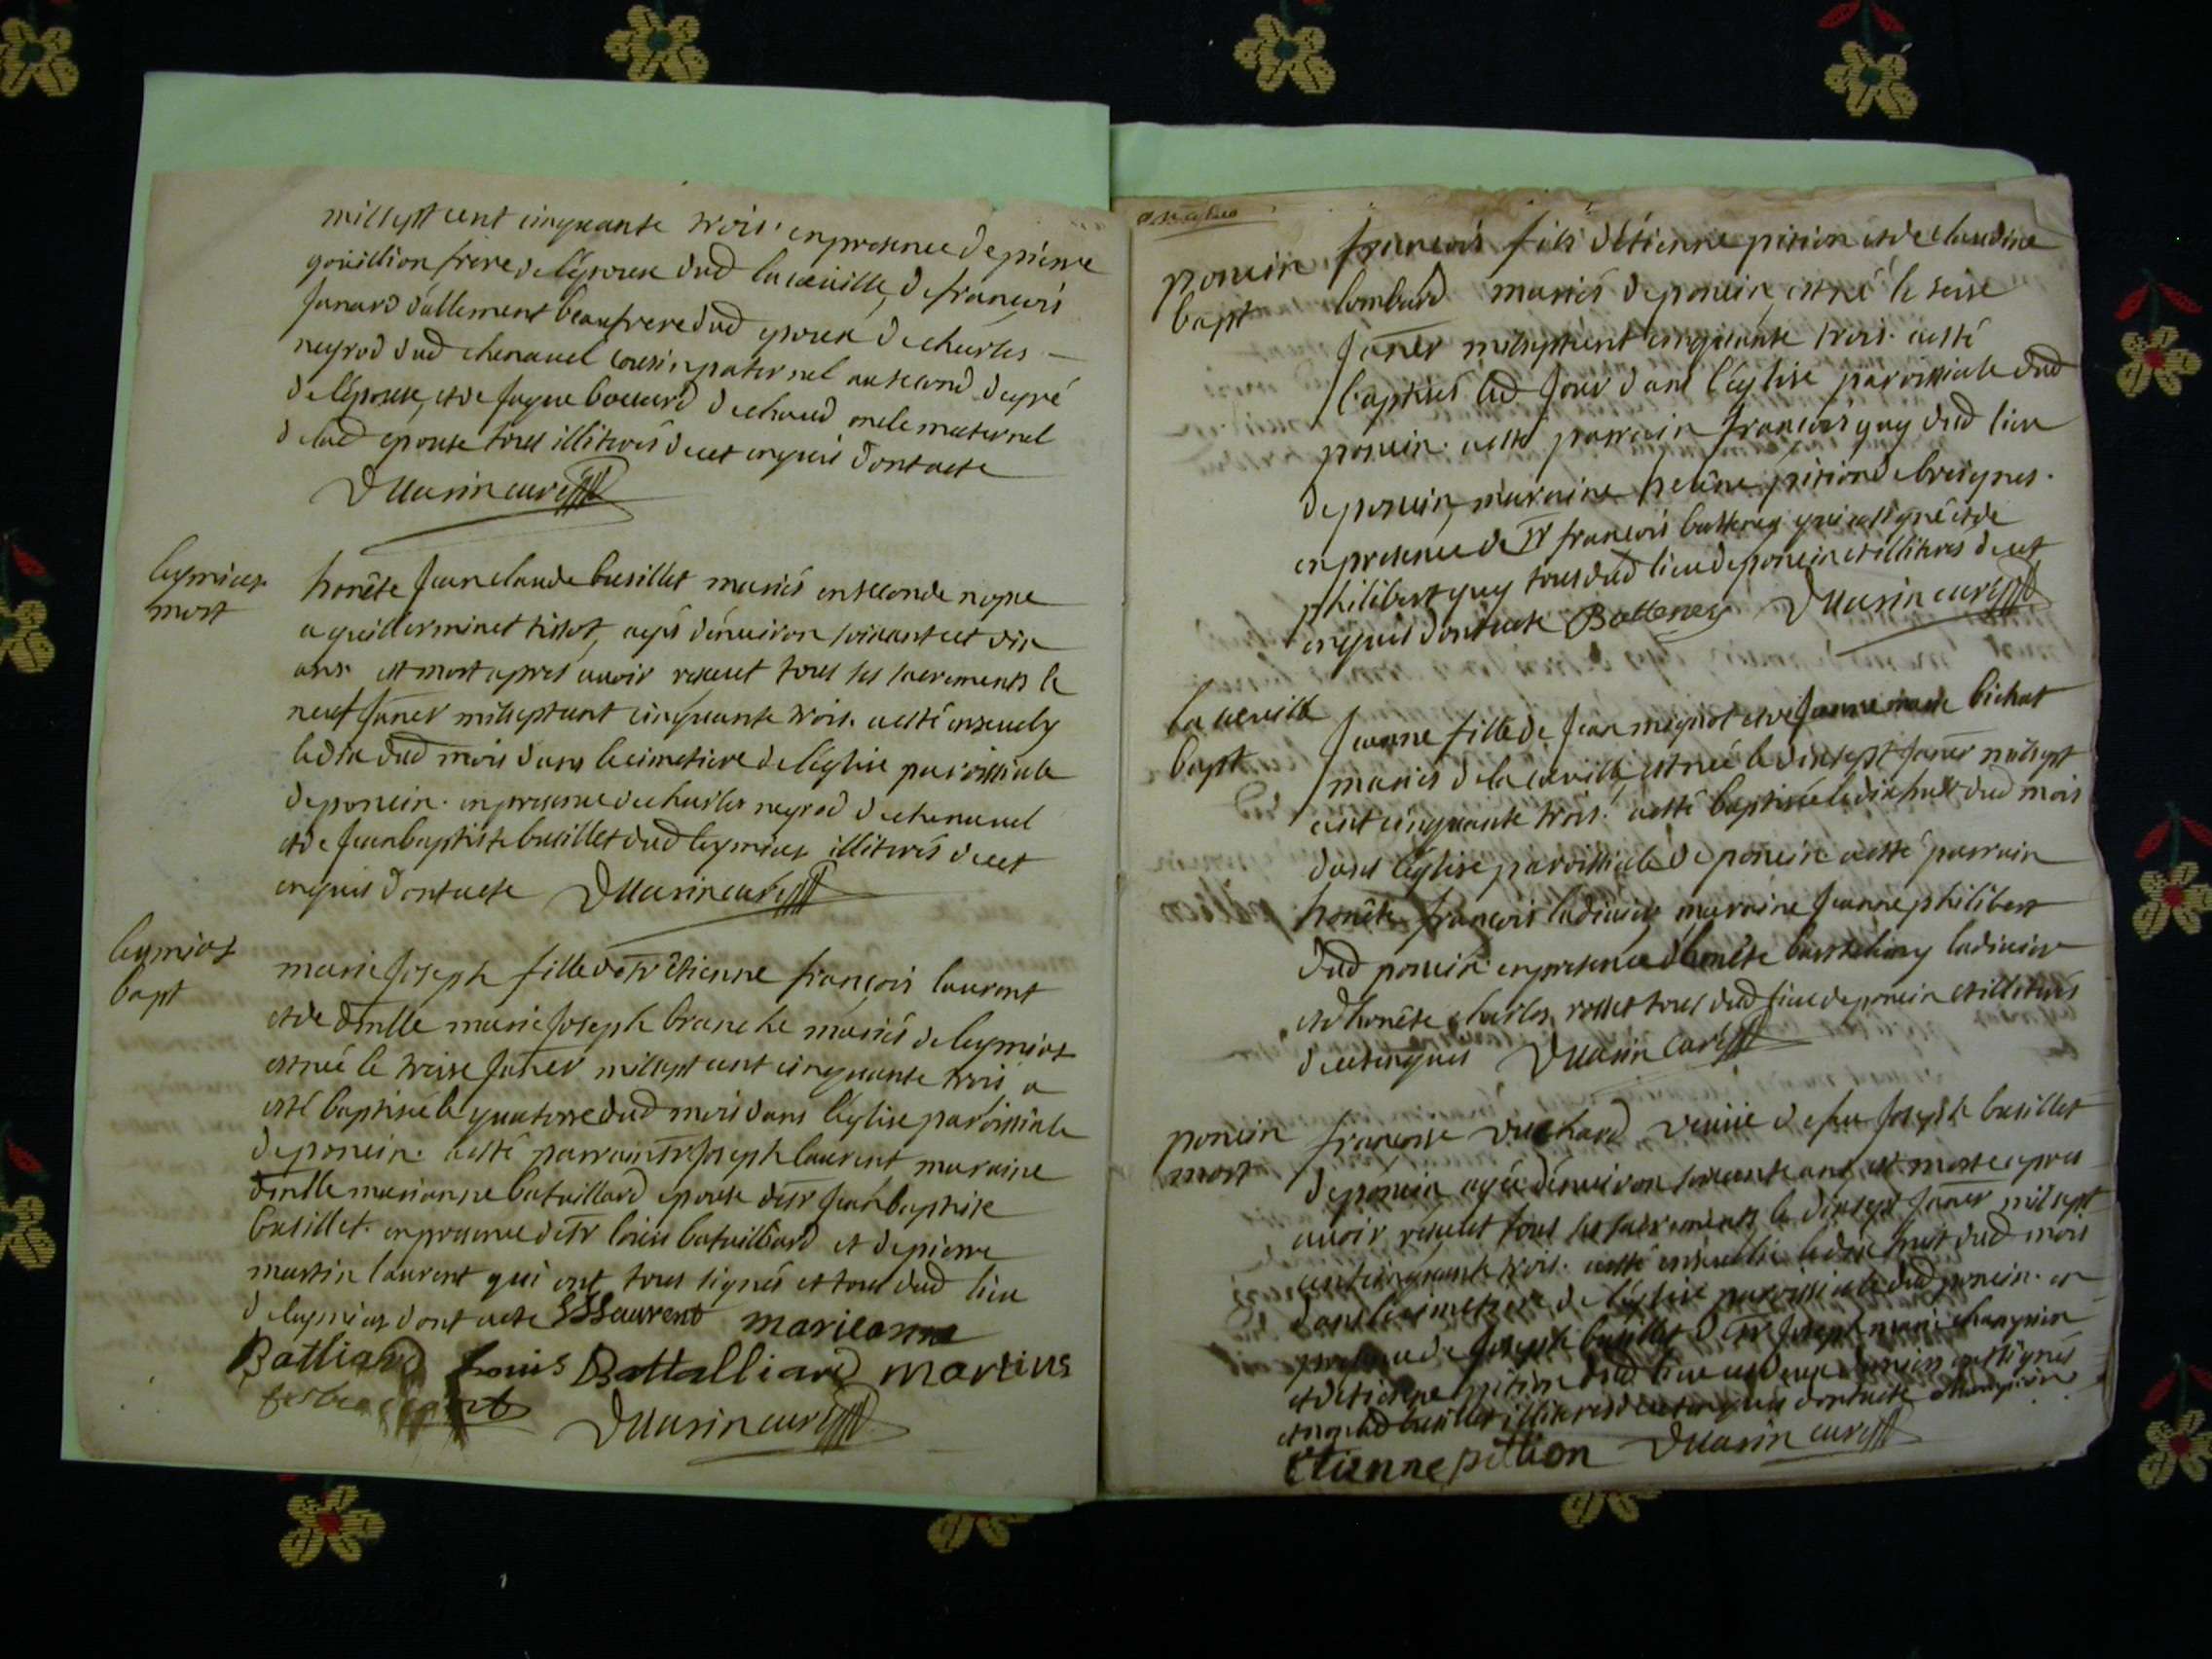 millsept cent cinquante trois. enpresence de pierre
gouillion frere de l'épouse dud la cueuille, de francois
Janard d'allement beaufrere dud epoux de charles
negrod dud chenavel cousin paternel au second degré
de l'épouse, et de Jaque bouvard de chaud oncle maternel
de lad épouse tous illiterés decet enquis dont acte
Duarin curé
leymiat
mort
honête Jean claude busillet mariés en seconde nopce
a guillerminet tissot, agés d'environ soixante et dix
ans est mort apres avoir receut tous les sacrements le
neuf Janer millsept cent cinquante trois. a esté ensevely
le dix dud mois dans le cimetiere de l'église paroissiale
de poncin. enpresence de charles negrod de chenavel
et de Jean baptiste busillet dud leymiat illiterés decet
enquis dont acte Duarin curé
leymiat
bapt
marie Joseph fille de sr étienne francois laurent
et de dmlle marie Joseph branche mariés de leymiat
est née le treize Janer millsept cent cinquante trois a
esté baptisée le quatorze dud mois dans l'église paroissiale
de poncin. a esté parrain sr Joseph laurent maraine
dmlle marianne bataillard epouse de sr Jean baptiste
busillet. enpresence de sr louis bataillard et de pierre
martin laurent qui ont tous signés et tous dud lieu
de leymiat dont acte Laurent marieanne
Batliard Louis Battalliard martins
Duarin curé
poncin
bapt
francois fils d'étienne pition et de claudine
lombard mariés de poncin, est né le seise
Janer millseptcent cinquante trois. a esté
baptisés led Jour dans l'église paroissiale dud
poncin. a esté parrain francois guy dud lieu
de poncin, maraine heléne pition de breignes.
en presence de sr francois batteney qui a signé et de
philibert guy tous dud lieu de poncin et illiterés decet
enquis dont acte Batteney Duarin curé
la cueuille
bapt
Jeanne fille de Jean mignot et de Jeanne marie bichat
mariés de la cueuille, est née le dixsept Janer millsept
cent cinquante trois. a esté baptisée le dix huit dud mois
dans l'église paroissiale de poncin a esté parrain
honête francois ladiuire maraine Jeanne philibert
dud poncin. enpresence d'honête barthelemy ladiuire
et d'honête charles rosset tous dud lieu de poncin et illiterés
decet enquis Duarin curé
poncin
mort
francoise vuchard veuve de feu Joseph busillet
de poncin agée d'environ soixante ans est morte apres
avoir receut tous les sacrements le dixsept Janer millsept
cent cinquante trois. a esté ensevelie le dix huit dud mois
dans le cimetiere de l'église paroissiale dud poncin. en
presence de Joseph busillet de sr Joseph marie changrion
et d'étienne pition dud lieu
et non led busillet illiteré decet enquis dont acte
étienne pition Duarin curé